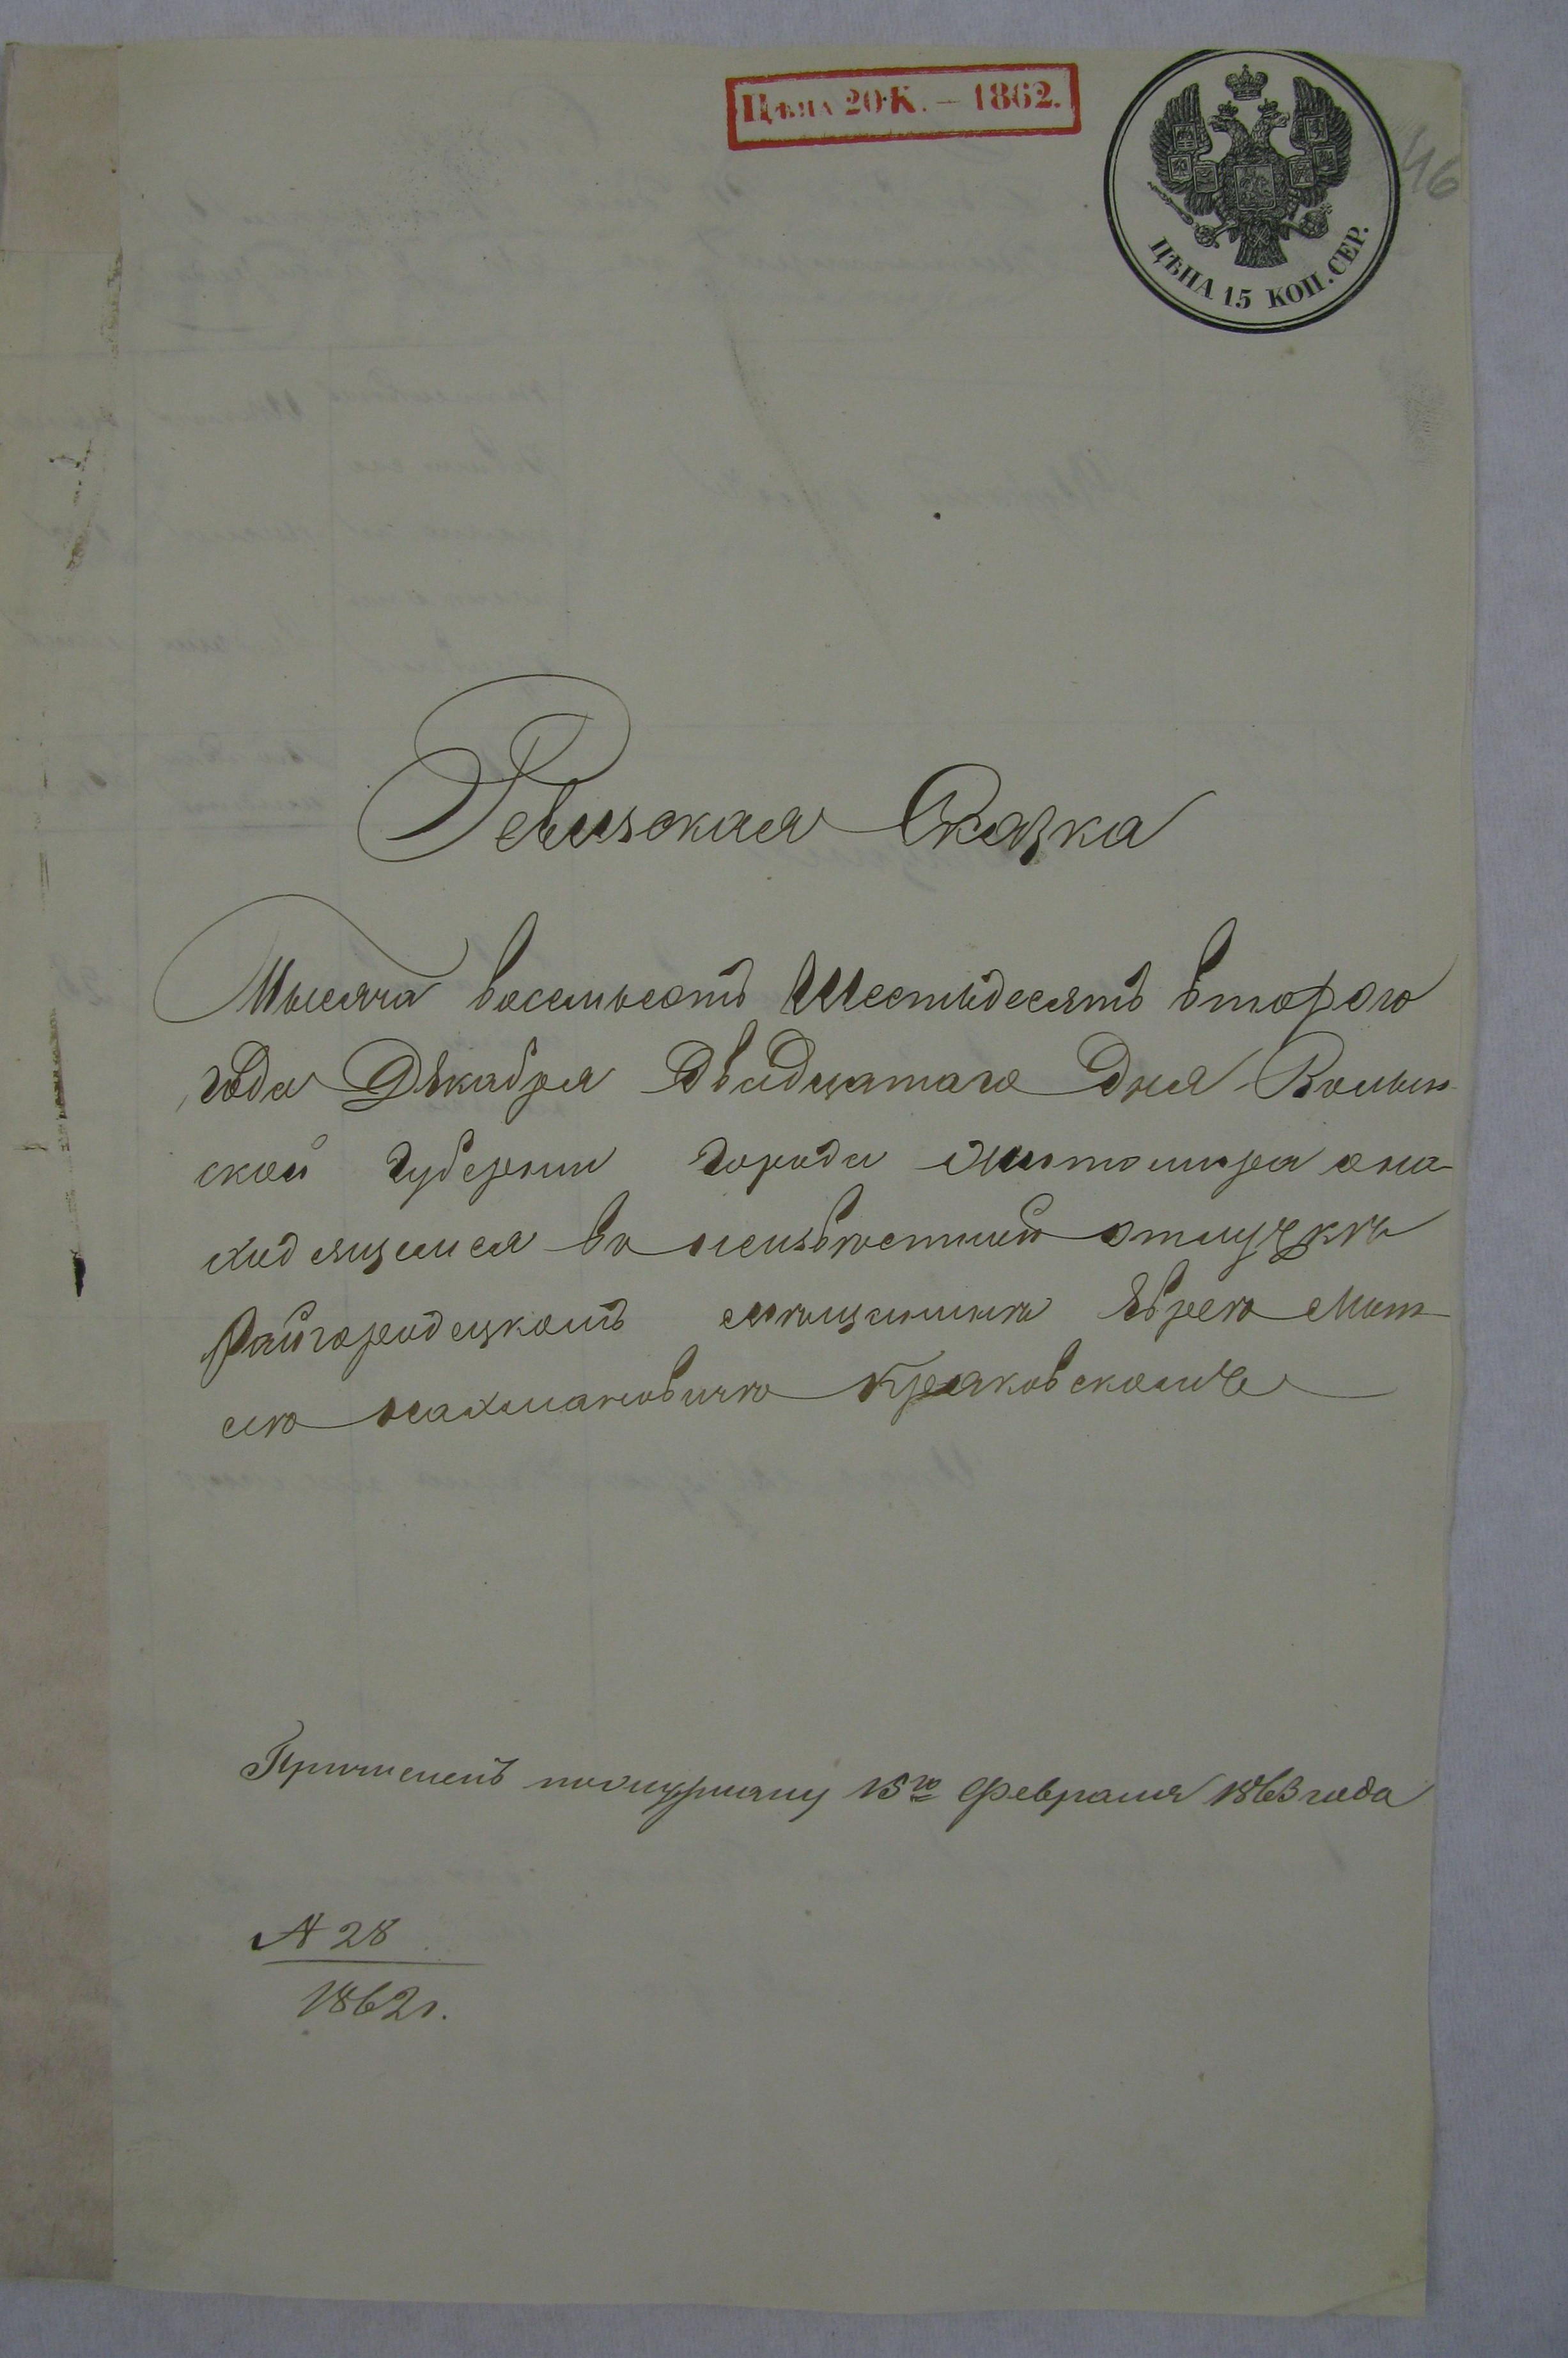 Цѣна 20 К. – 1862.
ЦѢНА 15 КОП. СЕР.
46
Ревизская Сказка
Тысяча восемьсотъ Шестьдесятъ второго
года Дѣкабря Двадцатаго Дня Волын-
ской Губерніи Города Житомира о на-
ходящемся въ неизвѣстной отлучкѣ
Райгородецкомъ мѣщанинѣ Еврею
Нахмановичю Краковскому
Причисленъ по журналу 15го Февраля 1863 года
№ 28
1862 г.